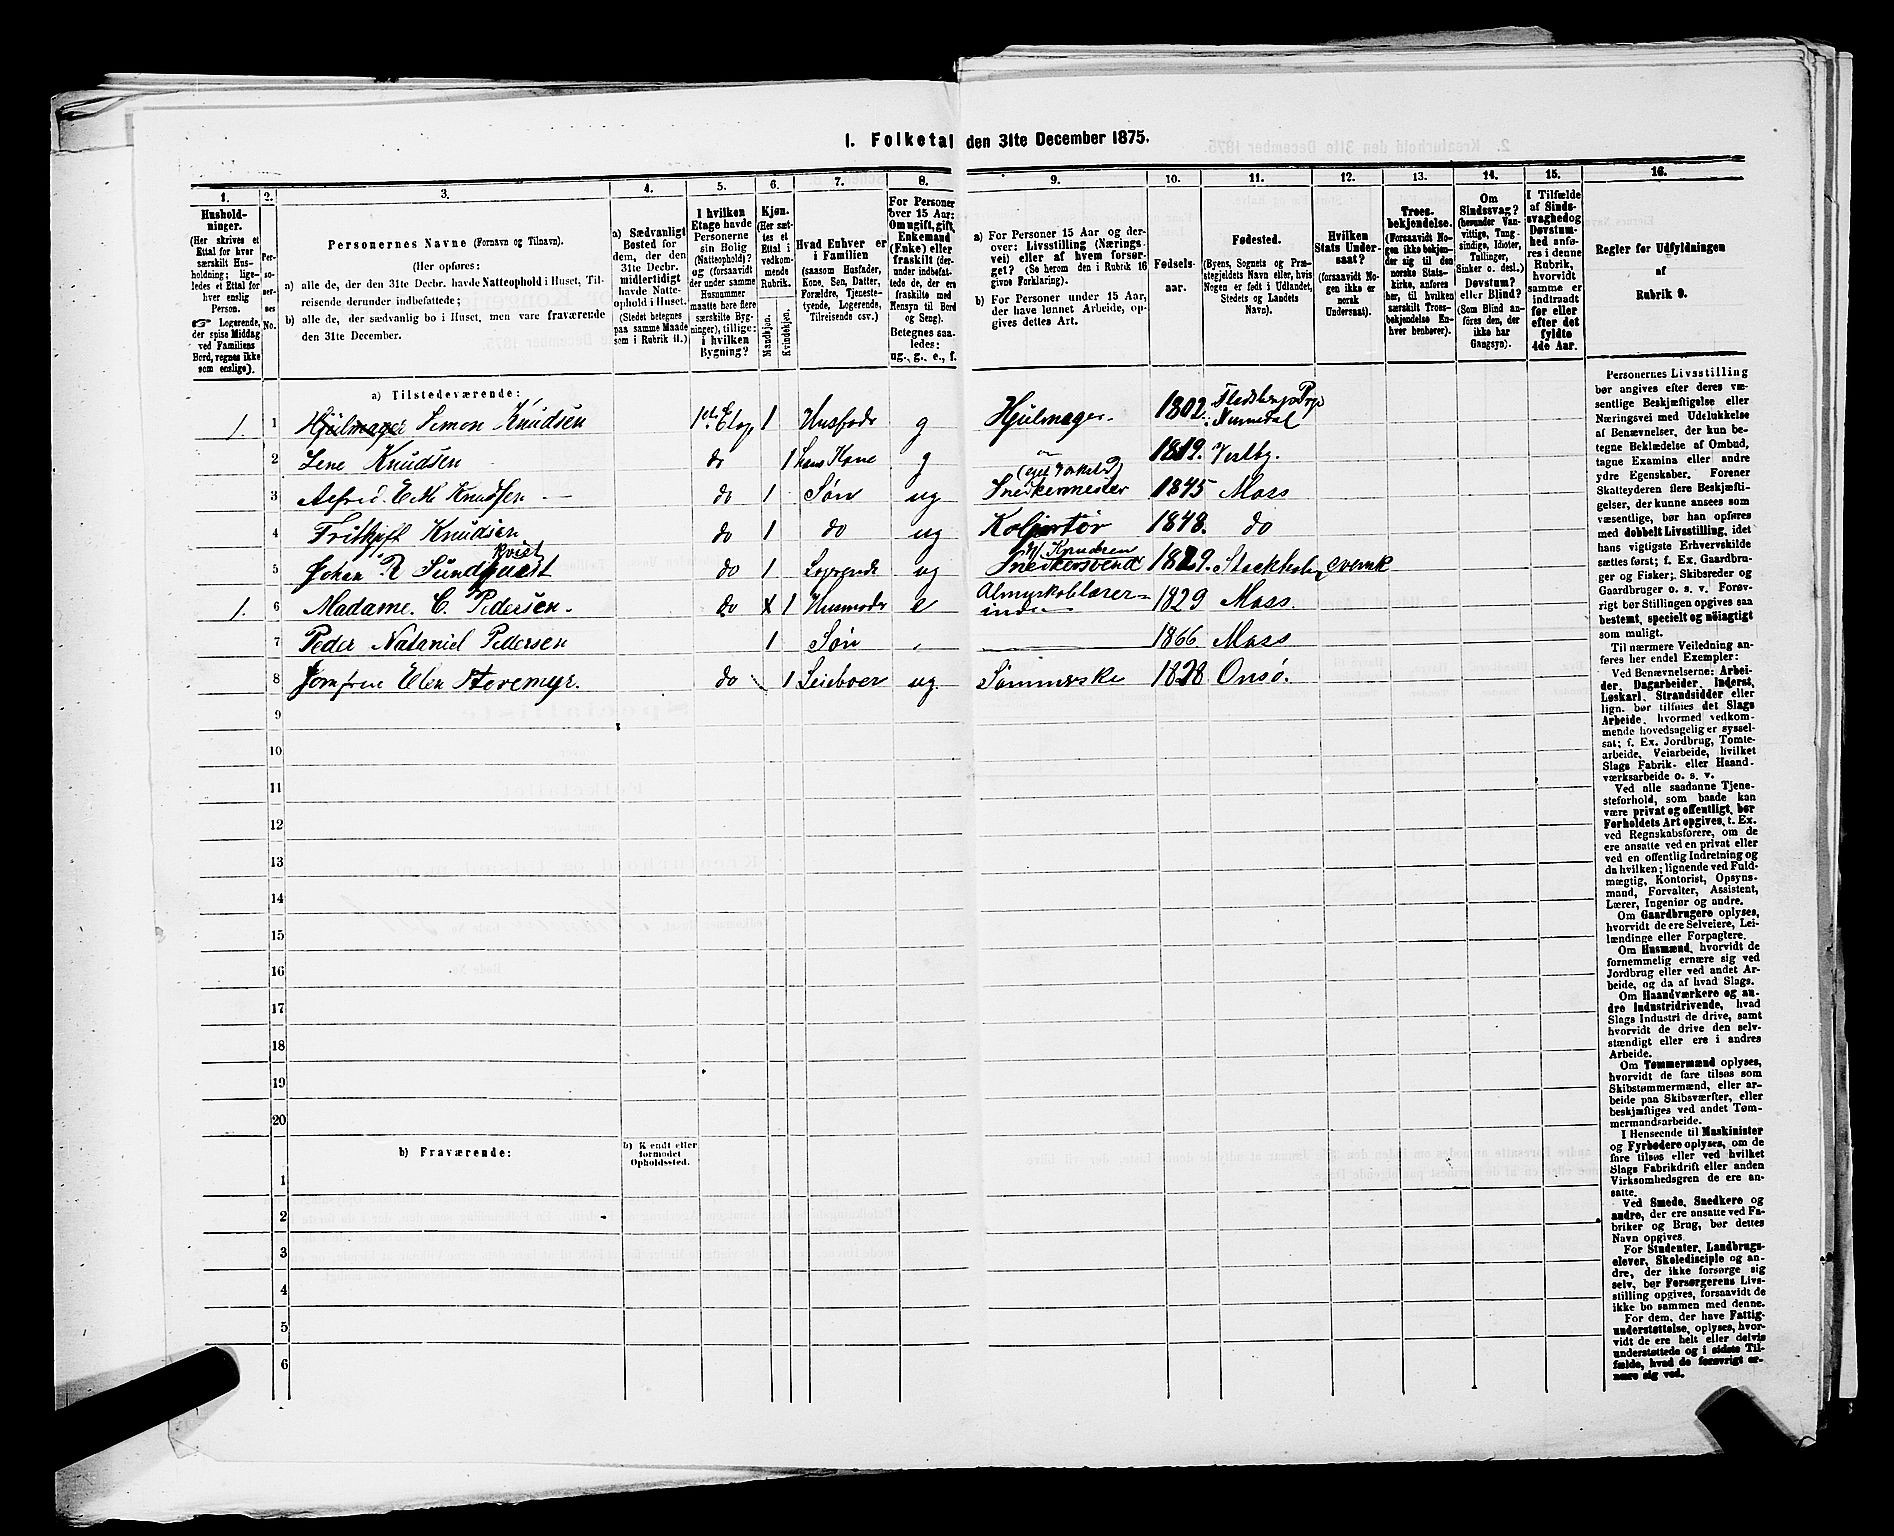 1. Folketal den 31te December 1875.
1. 2. 3. 4. 5. 6. 7. 8. 9. 10. 11. 12. 13. 14. 15. 16.
Hushold-
ninger.
(Her skrives et
Ettal for hver
særskilt Hus-
holdning; lige-
ledes et Ettal for
hver enslig
Person.
☞ Logerende,
der spise Middag
ved Familiens
Bord, regnes ikke
som enslige).
Per-
so-
ner-
nes
No.
Personernes Navne (Fornavn og Tilnavn).
(Her opføres:
a) alle de, der den 31te Decbr. havde Natteophold i Huset, Til-
reisende derunder indbefattede;
b) alle de, der sædvanlig bo i Huset, men vare fraværende
den 31te December.
a) Sædvanligt
Bosted for
dem, der den
31te Decbr.
midlertidigt
havde Natte-
ophold i Huset.
(Stedet betegnes
paa samme Maade
som i Rubrik 11.)
I hvilken
Etage havde
Personerne
sin Bolig
(Natteophold)?
og (forsaavidt
der under samme
Husnummer
maatte høre flere
særskilte Byg-
ninger), tillige:
i hvilken
Bygning?
Kjøn.
(Her sæt-
tes et
Ettal i
vedkom-
mende
Rubrik.
Mandkjøn.
Kvindekjøn.
Hvad Enhver er
i Familien
(saasom Husfader,
Kone, Søn, Datter,
Forældre, Tjeneste-
tyende, Logerende,
Tilreisende osv.)
For Personer
over 15 Aar:
Om ugift, gift,
Enkemand
(Enke) eller
fraskilt (der-
under indbefat-
tede de, der ere
fraskilte med
Hensyn til Bord
og Seng).
Betegnes saa-
ledes:
ug., g., e., f.
a) For Personer 15 Aar og der-
over: Livsstilling (Nærings-
vei) eller af hvem forsør-
get? (Se herom den i Rubrik 16
givne Forklaring).
b) For Personer under 15 Aar,
der have lønnet Arbeide, op-
gives dettes Art.
Fødsels-
aar.
Fødested.
(Byens, Sognets og Præ-
stegjeldets Navn eller, hvis
Nogen er født i Udlandet,
Stedets og Landets
Navn).
Hvilken
Stats Under-
saat?
(forsaavidt No-
gen ikke er
norsk
Undersaat).
Troes-
bekjendelse.
(Forsaavidt No-
gen ikke bekjen-
der sig til den
norske Stats-
kirke, anføres
her, til hvilken
særskilt Troes-
bekjendelse En-
hver henhører).
Om
Sindssvag?
(herunder Van-
vittige, Tung-
sindige, Idioter,
Tullinger,
Sinker o. desl.)
Døvstum?
eller Blind?
(Som Blind an-
føres den, der
ikke har
Gangsyn).
I Tilfælde
af Sinds-
svaghed og
Døvstum-
hed anfø-
res i denne
Rubrik,
hvorvidt
samme er
indtraadt
før eller
efter det
fyldte
4de Aar.
Regler for Udfyldningen
af
Rubrik 9.
a) Tilstedeværende:
1. 1 Hjulmager Simon Knudsen 1ste Etag 1 Husfadr g Hjulmager. 1802. Flesbergs Prgj Numedal
2 Lene Knudsen do 1 hans Kone g " 1819. Vestby.
3 Alfred E M Knudsen do 1 Søn ug (eget Verksted) Snekermester 1845 Moss
4 Frithjoft Knudsen do 1 do ug 1848. do
kvist
5 Johan R Sundquist do 1 Logerende ug M. Knudsen Snekersvend 1829. Stockholm svensk
1. 6 Madame. C. Pedersen. do x 1 Husmoder e Almuskolelærer=inde 1829 Moss.
7 Peder Nataniel Pedersen 1 Søn 1866 Moss
8 Jomfrue Elen Storemyr. do 1 Leieboer ug Sømmerske 1828 Onsø.
9
10
11
12
13
14
15
16
17
18
19
20
b) Fraværende:
b) Kjendt eller
formodet
Opholdssted.
1
2
3
4
5
6
Personernes Livsstilling
bør angives efter deres væ-
sentlige Beskjæftigelse eller
Næringsvei med Udelukkelse
af Benævnelser, der kun be-
tegne Beklædelse af Ombud,
tagne Examina eller andre
ydre Egenskaber. Forener
Skatteyderen flere Beskjæfti-
gelser, der kunne ansees som
væsentlige, bør han opføres
med dobbelt Livsstilling, idet
hans vigtigste Erhvervskilde
sættes først; f. Ex. Gaardbru-
ger og Fisker; Skibsreder og
Gaardbruger o. s. v. Forøv-
rigt bør Stillingen opgives saa
bestemt, specielt og nøiagtigt
som muligt.
Til nærmere Veiledning an-
føres her endel Exempler:
Ved Benævnelserne: Arbei-
der, Dagarbeider, Inderst,
Løskarl, Strandsidder eller
lign. bør tilføies det Slags
Arbeide, hvormed vedkom-
mende hovedsagelig er syssel-
sat; f. Ex. Jordbrug, Tomte-
arbeide, Veiarbeide, hvilket
Slags Fabrik- eller Haand-
værksarbeide o. s. v.
Ved alle saadanne Tjene-
steforhold, som baade kan
være privat og offentligt, bør
Forholdets Art opgives, t. Ex.
ved Regnskabsførere, om de
ere ansatte ved en privat eller
ved en offentlig Indretning og
da hvilken; lignende ved Fuld-
mægtig, Kontorist, Opsyns-
mand, Forvalter, Assistent,
Lærer, Ingeniør og andre.
Om Gaardbrugere oplyses,
hvorvidt de ere Selveiere, Lei-
lændinge eller Forpagtere.
Om Husmænd, hvorvidt de
fornemmelig ernære sig ved
Jordbrug eller ved andet Ar-
beide, og da af hvad Slags.
Om Haandværkere og an-
dre Industridrivende, hvad
Slags Industri de drive, samt
hvorvidt de drive den selv-
stændigt eller ere i andres
Arbeide.
Om Tømmermænd oplyses,
hvorvidt de fare tilsøs som
Skibstømmermænd, eller ar-
beide paa Skibsværfter, eller
beskjæftiges ved andet Tøm-
mermandsarbeide.
I Henseende til Maskinister
og Fyrbødere oplyses, om de
fare tilsøs eller ved hvilket
Slags Fabrikdrift eller anden
Virksomhedsgren de ere an-
satte.
Ved Smede, Snedkere og
andre, der ere ansatte ved Fa-
briker og Brug, bør dettes
Navn opgives.
For Studenter, Landbrugs-
elever, Skoledisciple og an-
dre, der ikke forsørge sig
selv, bør Forsørgerens Livs-
stilling opgives, forsaavidt de
ikke bo sammen med denne.
For dem, der have Fattig-
understøttelse, oplyses, hvor-
vidt de ere helt eller delvis
understøttede og i sidste Til-
fælde, hvad de forøvrigt er-
nære sig ved.